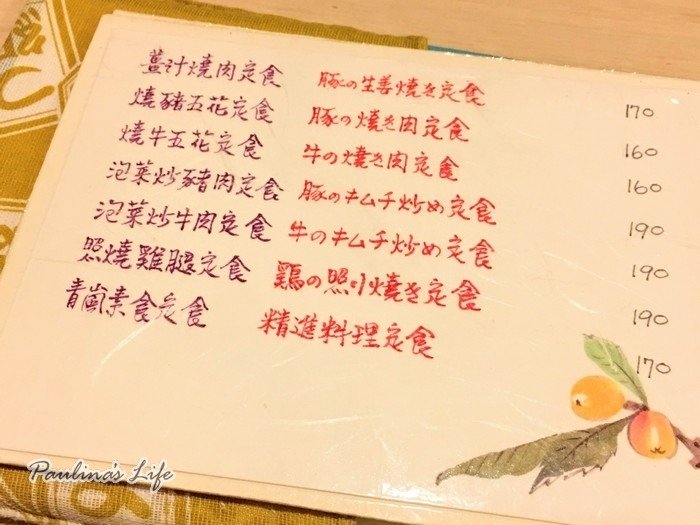 薑汁燒肉定食 豚の生姜焼き定食 170
燒豬五花定食 豚の焼き肉定食 160
燒牛五花定食 牛の焼き肉定食 160
泡菜炒豬肉定食 豚のキムチ炒め定食 190
泡菜炒牛肉定食 牛のキムチ炒め定食 190
照燒雞腿定食 鶏の照り焼き定食 190
青崗素食定食 精進料理定食 170
Paulina's Life